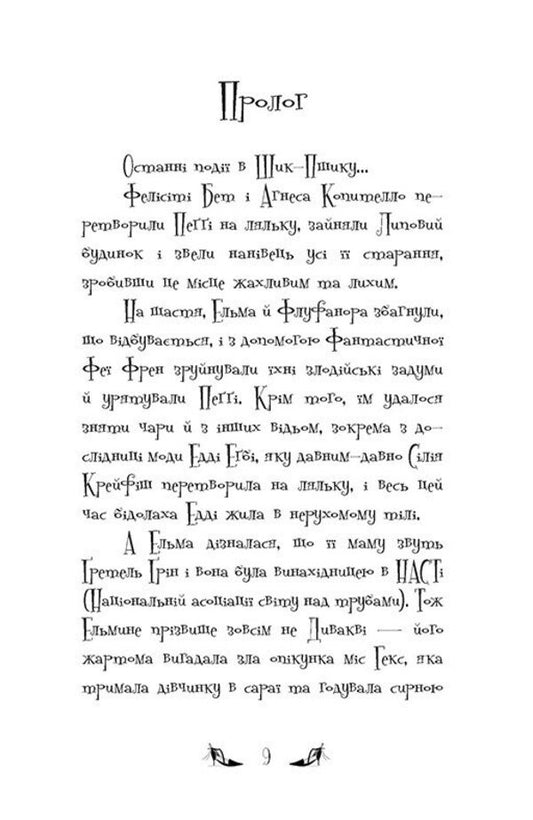 Пролог
Останні події в Шик-Пшику...
Фелісіті Бет і Агнеса Копителло пе-
ретворили Пеґґі на ляльку, зайняли Липовий
будинок і звели нанівець усі її старання,
зробивши це місце жахливим та лихим.
На щастя, Ельма й Флуфанора збагнули,
що відбувається, і з допомогою Фантастичної
Феї Френ зруйнували їхні злодійські задуми
й урятували Пеґґі. Крім того, їм удалося
зняти чари й з інших відьом, зокрема з до-
слідниці моди Едді Еґбі, яку давним-давно Сілія
Крейфіш перетворила на ляльку, і весь цей
час бідолаха Едді жила в нерухомому тілі.
А Ельма дізналася, що її маму звуть
Ґретель Ґрін і вона була винахідницею в НАСТі
(Національній асоціації світу над трубами). Тож
Ельмине прізвище зовсім не Дивакві — його
жартома вигадала зла опікунка міс Гекс, яка
тримала дівчинку в сараї та годувала сирною
9